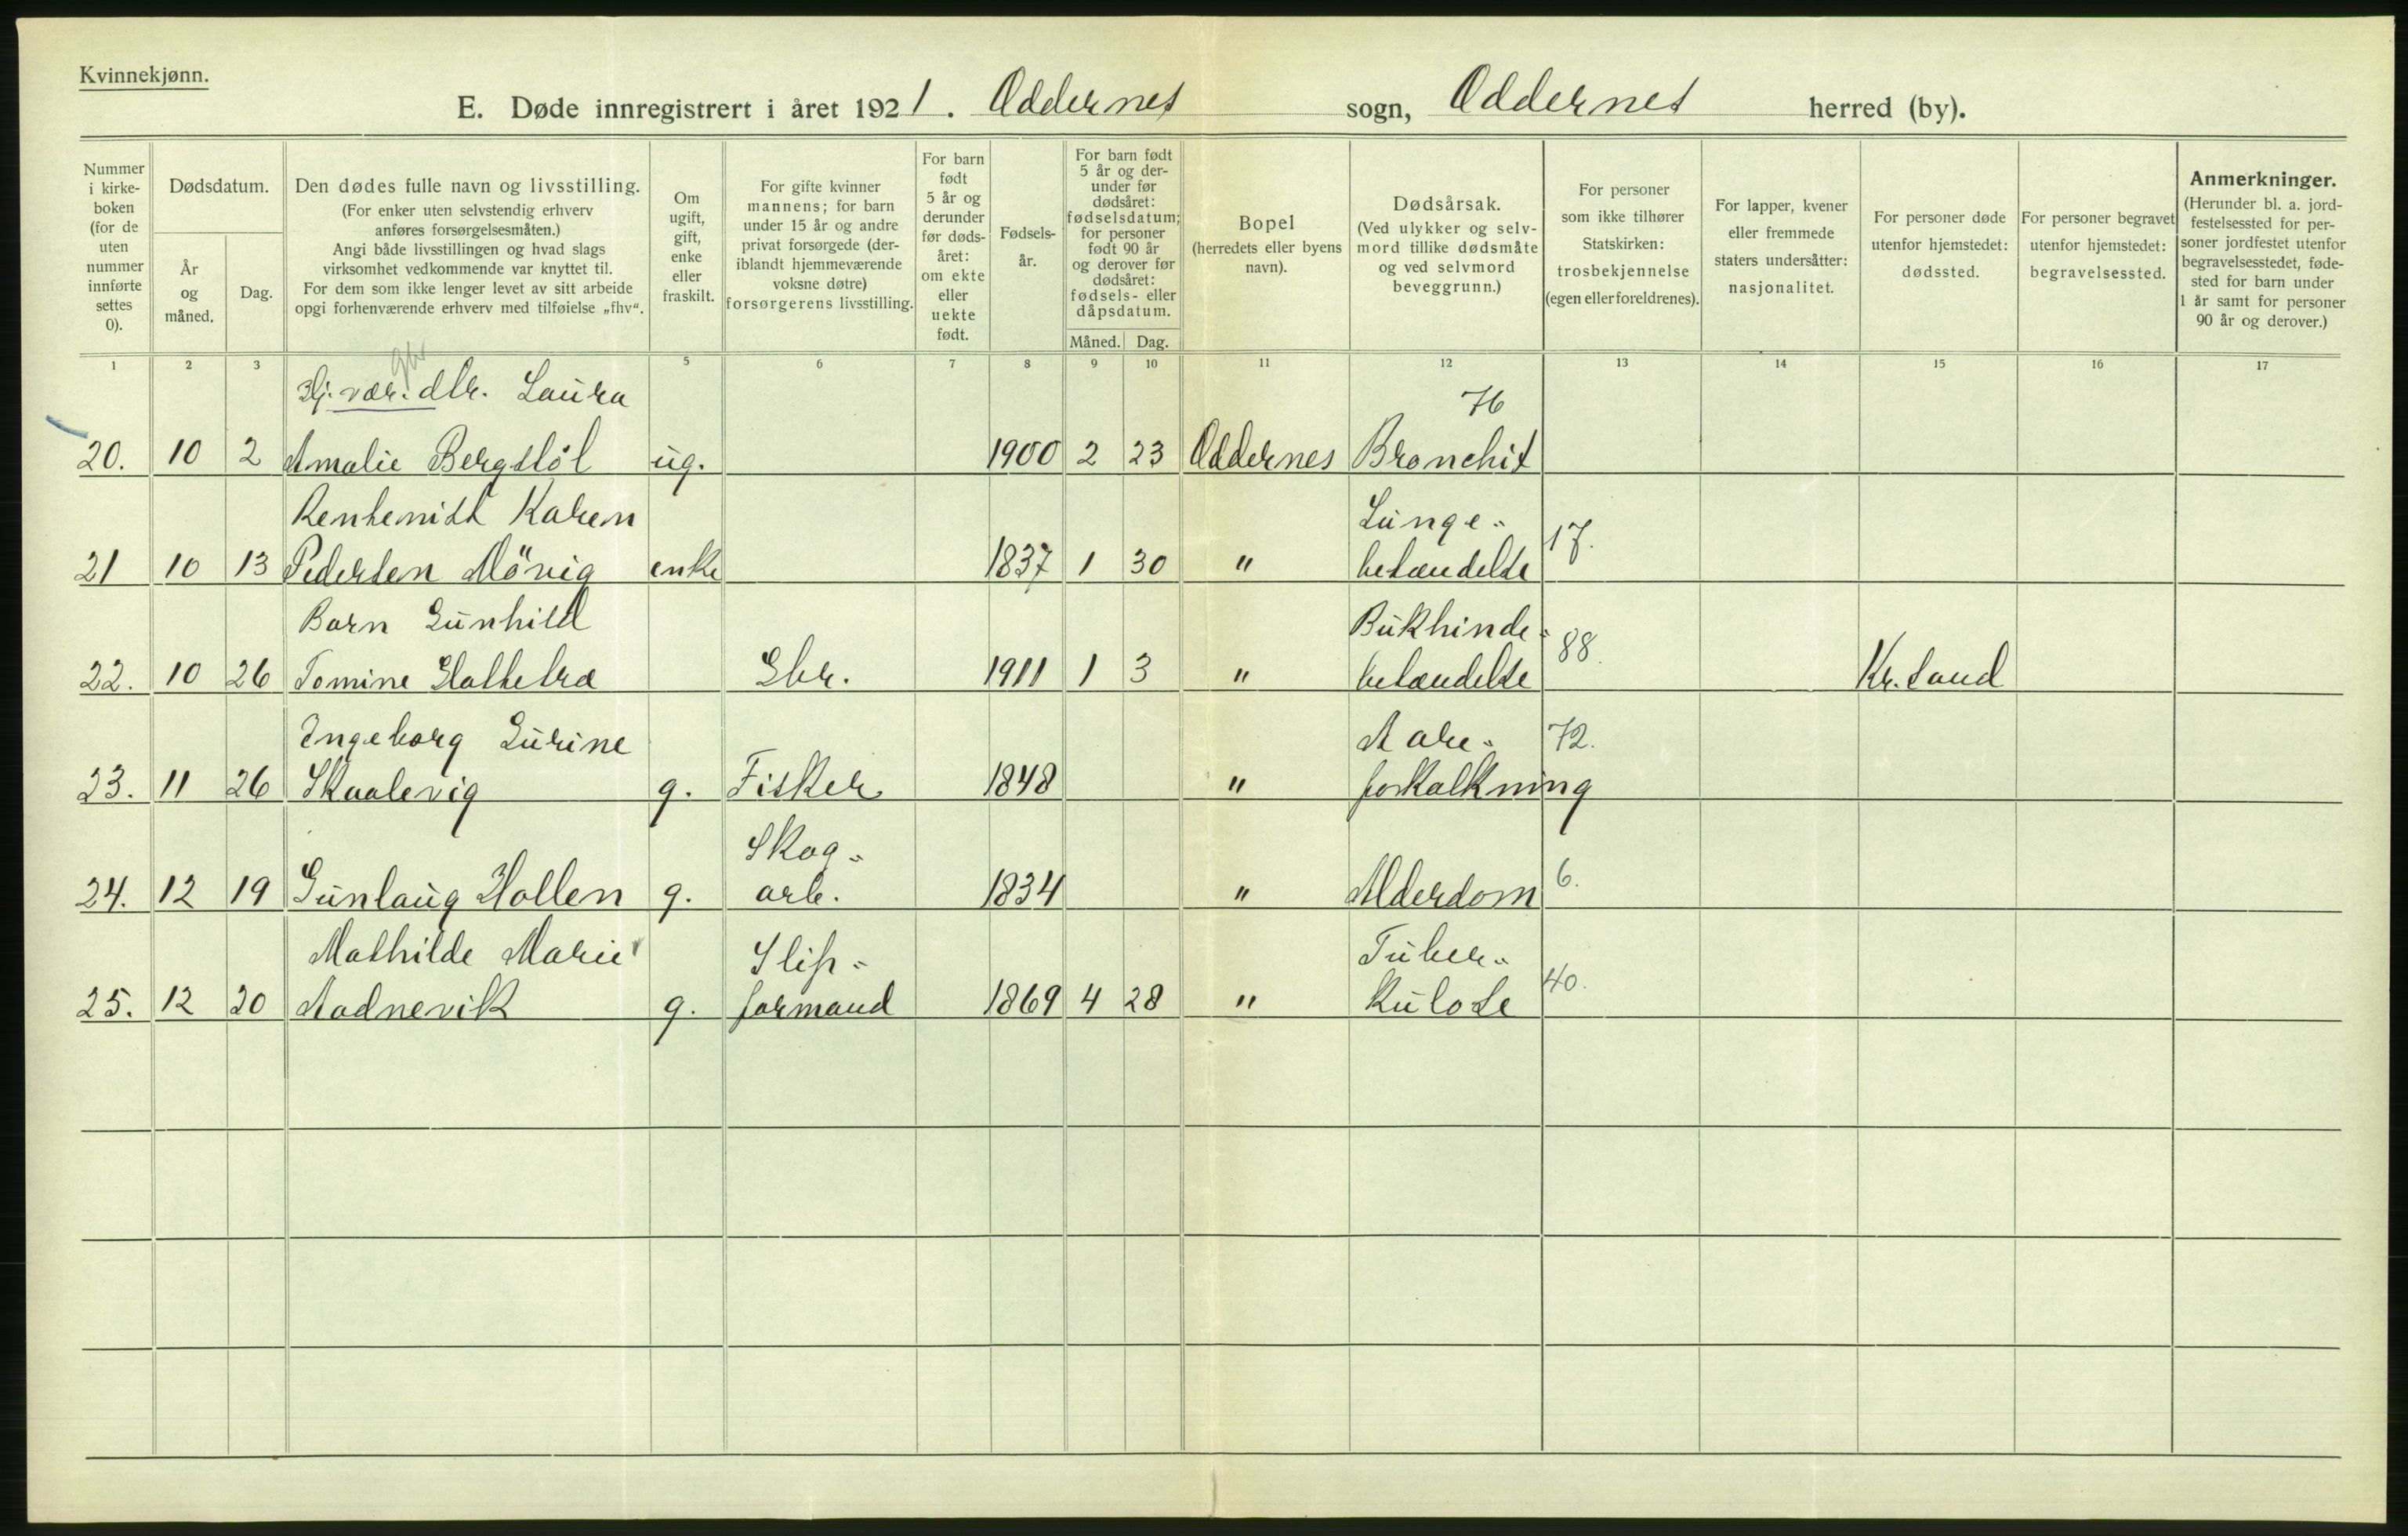 Kvinnekjønn.
E. Døde innregistrert i året 1921. Oddernes sogn, Oddernes herred (by).
Nummer i kirke- boken (for de uten nummer innførte settes 0).
Dødsdatum.
År og måned.
Dag.
Den dødes fulle navn og livsstilling.
(For enker uten selvstendig erhverv
anføres forsørgelsesmåten.)
Angi både livsstillingen og hvad slags
virksomhet vedkommende var knyttet til.
For dem som ikke lenger levet av sitt arbeide
opgi forhenværende erhverv med tilføielse „fhv“.
Om ugift, gift, enke eller fraskilt.
For gifte kvinner
mannens; for barn
under 15 år og andre
privat forsørgede (der-
iblandt hjemmeværende
voksne døtre)
forsørgerens livsstilling.
For barn født 5 år og derunder før døds- året: om ekte eller uekte født.
Fødsels- år.
For barn født
5 år og der-
under før
dødsåret:
fødselsdatum;
for personer
født 90 år
og derover før
dødsåret:
fødsels- eller
dåpsdatum.
Måned. Dag.
Bopel
(herredets eller byens
navn).
Dødsårsak.
(Ved ulykker og selv-
mord tillike dødsmåte
og ved selvmord
beveggrunn.)
For personer
som ikke tilhører
Statskirken:
trosbekjennelse
(egen eller foreldrenes).
For lapper, kvener
eller fremmede
staters undersåtter:
nasjonalitet.
For personer døde
utenfor hjemstedet:
dødssted.
For personer begravet
utenfor hjemstedet:
begravelsessted.
Anmerkninger.
(Herunder bl. a. jord-
festelsessted for per-
soner jordfestet utenfor
begravelsesstedet, føde-
sted for barn under
1 år samt for personer
90 år og derover.)
1 2 3 5 6 7 8 9 10 11 12 13 14 15 16 17
Hj. vær. dtr. Laura 76
20. 10 2 Amalie Bergstöl ug. 1900 2 23 Oddernes Bronchit
Rentenist Karen Lunge- 17.
21 10 13 Pedersen Mövig enke 1837 1 30 " betændelse
Barn Gunhild Bukhinde- 88.
22. 10 26 Tomine Hattetræ Gbr. 1911 1 3 " betændelse Kr. sand
Ingeborg Gurine Aare- 72.
23. 11 26 Skaalevig g. Fisker 1848 " forkalkning
Skog- 6.
24. 12 19 Gunlaug Hollen g. arb. 1834 " Alderdom
Mathilde Marie Slip- Tuber- 40.
25. 12 20 Aadnevik g. formand 1869 4 28 " kulose